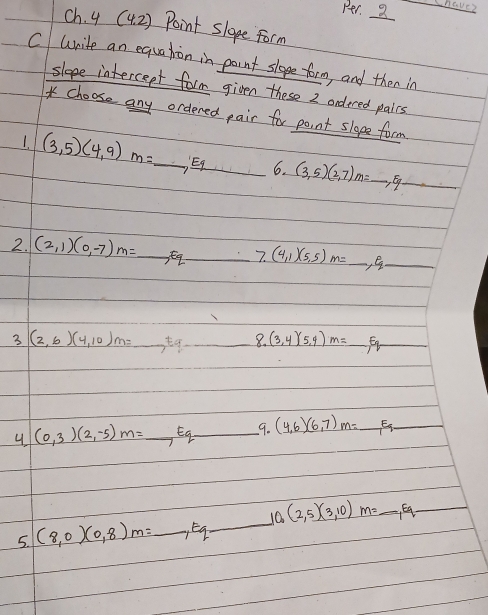 Chavez
Per. 2
Ch. 4 (4.2) Point slope form
C. Write an equation in point slope form, and then in
slope intercept form given these 2 ordered pairs
* Choose any ordered pair for point slope form.
1. (3,5)(4,9) m=___, Eq______
6. (3,5)(2,7) m=__, Eq______
2. (2,1)(0,-7) m=___, Eq______
7. (4,1)(5,5) m=__, Eq______
3. (2,6)(4,10) m=___, Eq______
8. (3,4)(5,9) m=__, Eq______
4. (0,3)(2,-5) m=___, Eq______
9. (4,6)(6,7) m=__, Eq______
5. (8,0)(0,8) m=___, Eq______
10. (2,5)(3,10) m=__, Eq______